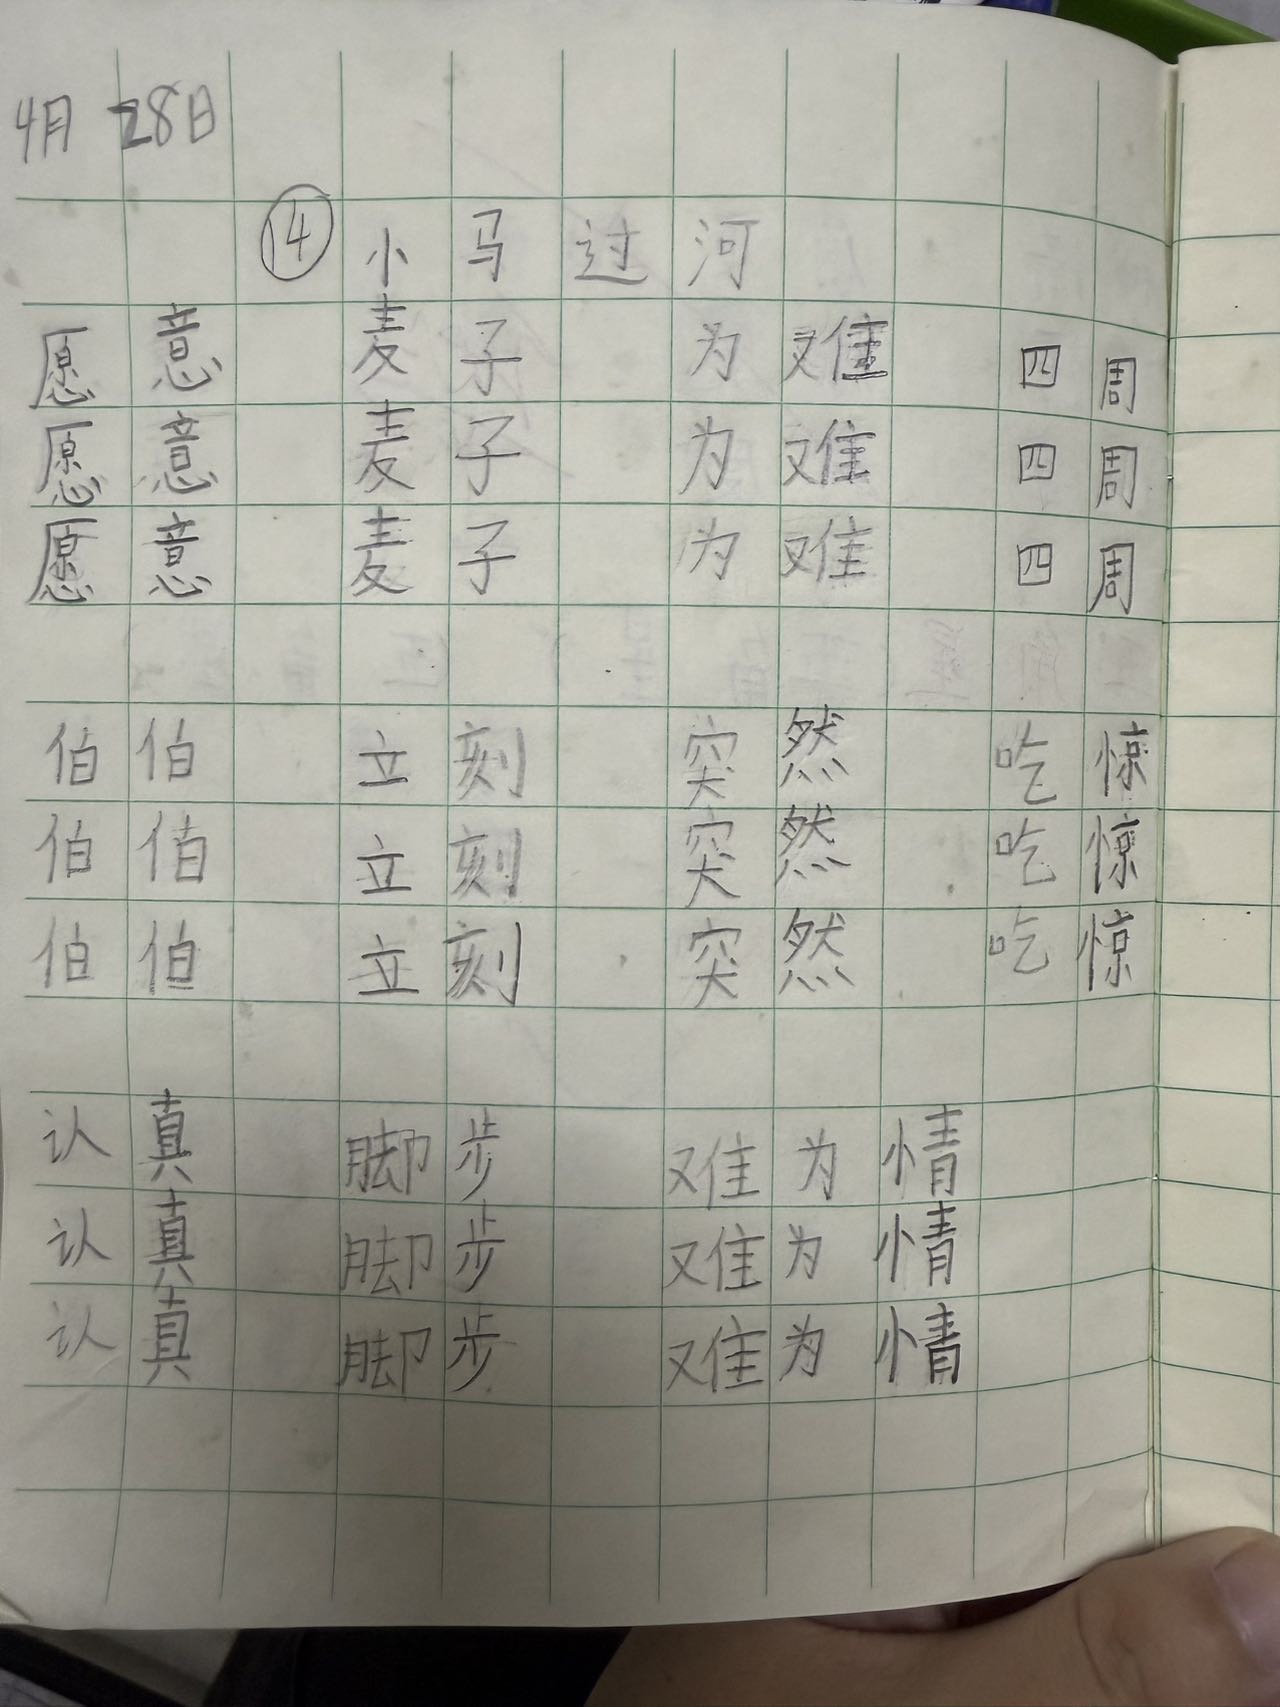 4月 28日
⑭ 小马过河
愿意 麦子 为难 四周
愿意 麦子 为难 四周
愿意 麦子 为难 四周
伯伯 立刻 突然 吃惊
伯伯 立刻 突然 吃惊
伯伯 立刻 突然 吃惊
认真 脚步 难为情
认真 脚步 难为情
认真 脚步 难为情